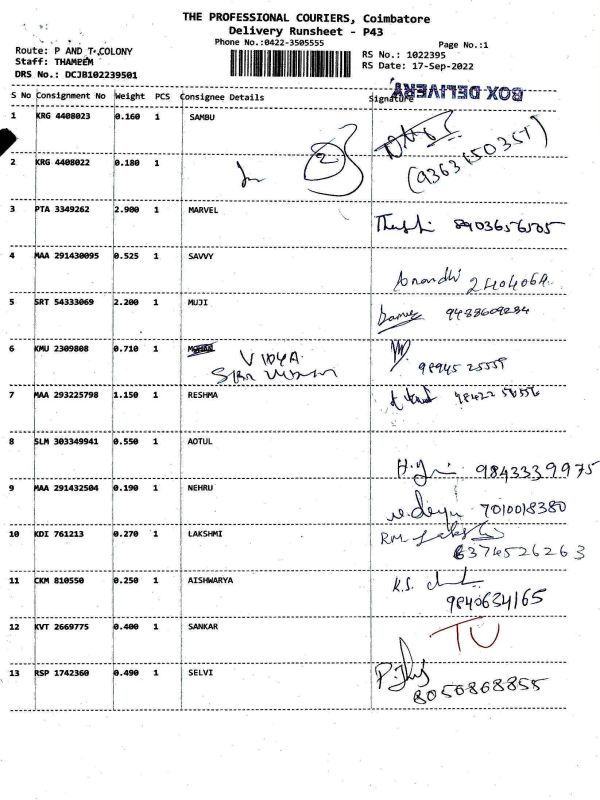 THE PROFESSIONAL COURIERS, Coimbatore
Delivery Runsheet - P43
Phone No.:0422-3505555
Page No.:1
Route: P AND T COLONY
RS No.: 1022395
Staff: THAMEEM
RS Date: 17-Sep-2022
DRS No.: DCJB102239501
BOX DELIVERY
S No Consignment No Weight PCS Consignee Details Signature
1 KRG 4408023 0.160 1 SAMBU
2 KRG 4408022 0.180 1 2
3 PTA 3349262 2.900 1 MARVEL 8903656505
4 MAA 291430095 0.525 1 SAVVY
5 SRT 54333069 2.200 1 MUJI 9488609284
6 KMU 2309808 0.710 1 VIDYA 98945 25559
7 MAA 293225798 1.150 1 RESHMA
8 SLM 303349941 0.550 1 AOTUL 9843339975
9 MAA 291432504 0.190 1 NEHRU 7010018380
10 KDI 761213 0.270 1 LAKSHMI 6374526263
11 CKM 810550 0.250 1 AISHWARYA K.S. 9840634165
12 KVT 2669775 0.400 1 SANKAR TU
13 RSP 1742360 0.490 1 SELVI 8050868855